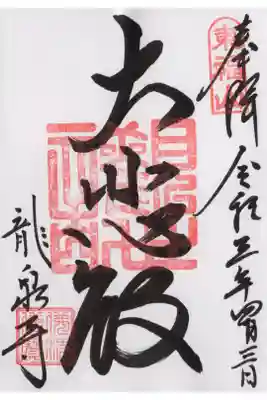 東福山
奉拝 令和三年四月三日
大悲殿
龍泉寺